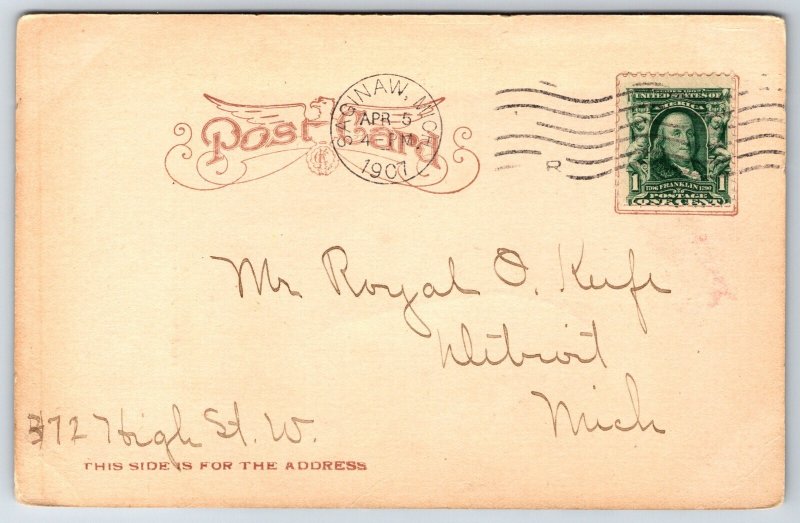 Post Card
SAGINAW, MICH.
APR 5
4 PM
1907
R
UNITED STATES OF
AMERICA
1706 FRANKLIN 1790
1 POSTAGE 1
ONE CENT
Mr. Royal O. Keefe
Ditroit
Mich
372 High St. W.
THIS SIDE IS FOR THE ADDRESS